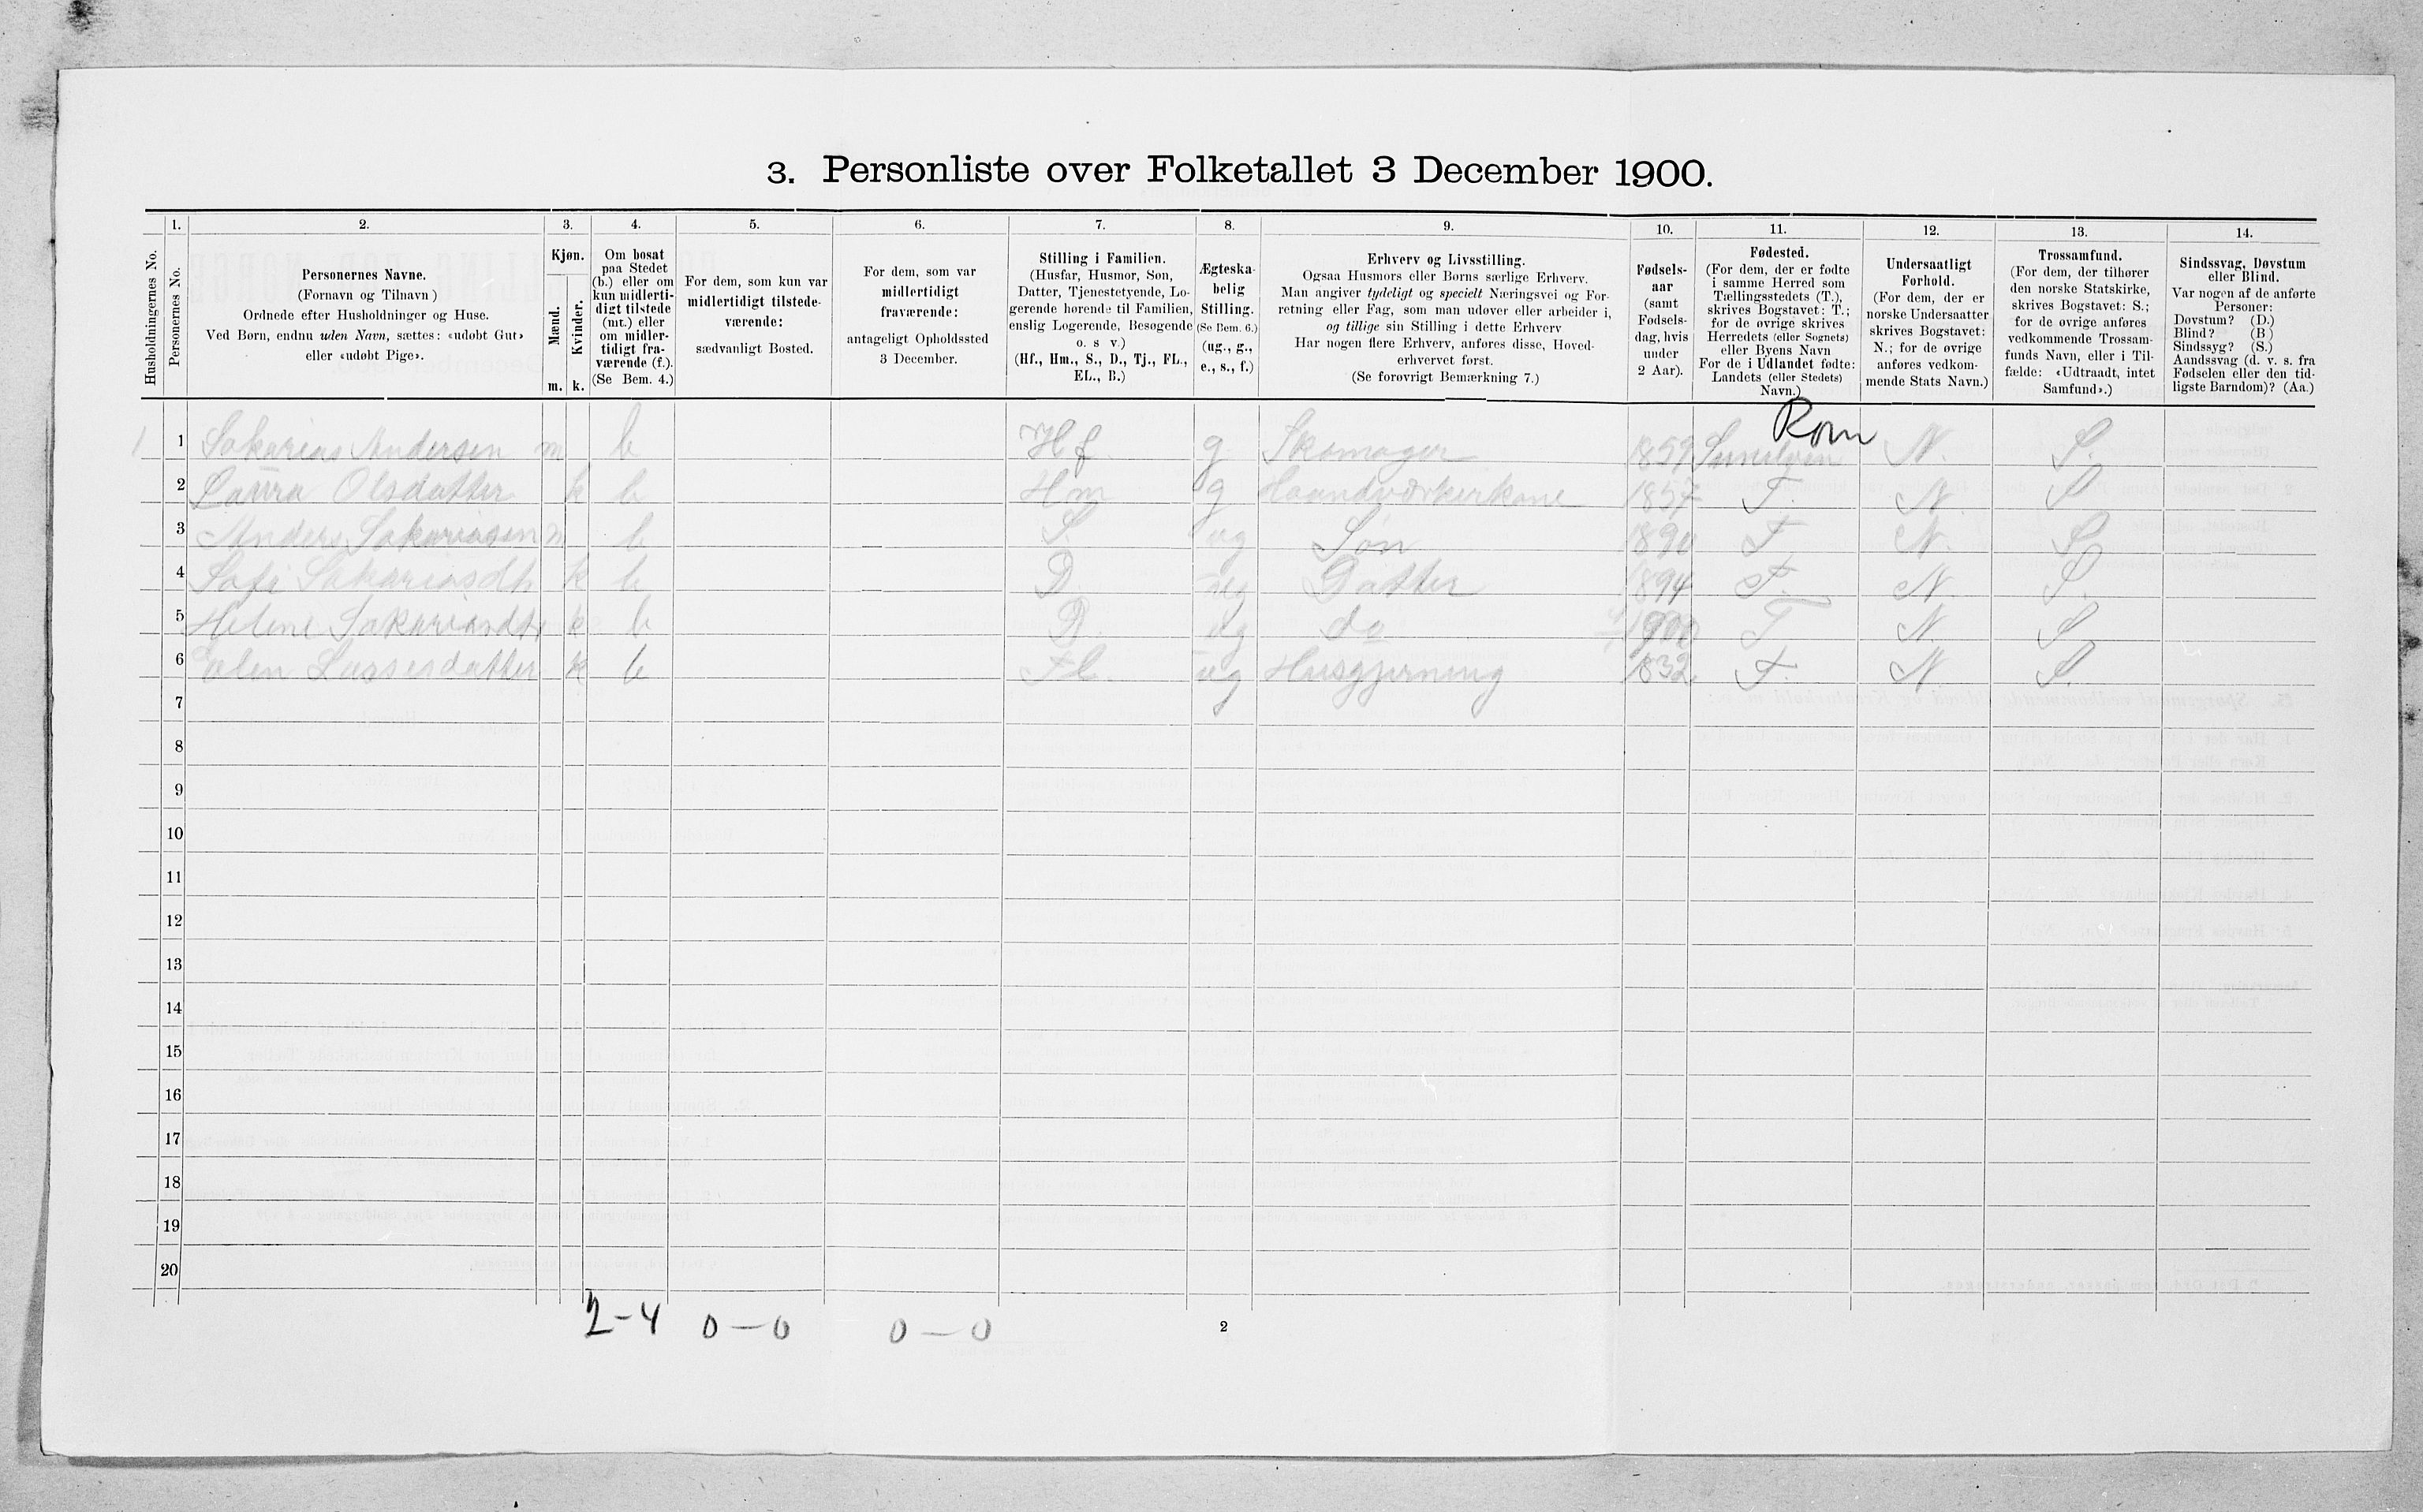 3. Personliste over Folketallet 3 December 1900.
Husholdningernes No.
1.
Personernes No.
2.
Personernes Navne.
(Fornavn og Tilnavn)
Ordnede efter Husholdninger og Huse.
Ved Børn, endnu uden Navn, sættes: «udøbt Gut»
eller «udøbt Pige».
3.
Kjøn.
Mænd.
Kvinder.
m. k.
4.
Om bosat
paa Stedet
(b.) eller om
kun midlerti-
digt tilstede
(mt.) eller
om midler-
tidigt fra-
værende (f.).
(Se Bem. 4.)
5.
For dem, som kun var
midlertidigt tilstede-
værende:
sædvanligt Bosted.
6.
For dem, som var
midlertidigt
fraværende:
antageligt Opholdssted
3 December.
7.
Stilling i Familien.
(Husfar, Husmor, Søn,
Datter, Tjenestetyende, Lo-
gerende hørende til Familien,
enslig Logerende, Besøgende
o. s v.)
(Hf., Hm., S., D., Tj., FL.,
EL., B.)
8.
Ægteska-
belig
Stilling.
(Se Bem. 6.)
(ug., g.,
e., s., f.)
9.
Erhverv og Livsstilling.
Ogsaa Husmors eller Børns særlige Erhverv.
Man angiver tydeligt og specielt Næringsvei og For-
retning eller Fag, som man udøver eller arbeider i,
og tillige sin Stilling i dette Erhverv
Har nogen flere Erhverv, anføres disse, Hoved-
erhvervet først.
(Se forøvrigt Bemærkning 7.)
10.
Fødsels-
aar
(samt
Fødsels-
dag, hvis
under
2 Aar).
11.
Fødested.
(For dem, der er fødte
i samme Herred som
Tællingsstedets (T.),
skrives Bogstavet: T.;
for de øvrige skrives
Herredets (eller Sognets)
eller Byens Navn
For de i Udlandet fødte:
Landets (eller Stedets)
Navn.)
12.
Undersaatligt
Forhold.
(For dem, der er
norske Undersaatter
skrives Bogstavet:
N.; for de øvrige
anføres vedkom-
mende Stats Navn.)
13.
Trossamfund.
(For dem, der tilhører
den norske Statskirke,
skrives Bogstavet: S.;
for de øvrige anføres
vedkommende Trossam-
funds Navn, eller i Til-
fælde: «Udtraadt, intet
Samfund».)
14.
Sindssvag, Døvstum
eller Blind.
Var nogen af de anførte
Personer:
Døvstum? (D.)
Blind? (B)
Sindssyg? (S.)
Aandssvag (d. v. s. fra
Fødselen eller den tid-
ligste Barndom)? (Aa.)
Rom
1 1 Sakarias Andersen m b Hf. g Skomager 1859 N. S.
2 Laura Olsdatter k b Hm g Haandværkerkone 1857 T. N. S
3 Anders Sakariasen m b S. ug Søn 1890 T N. S
4 Sofi Sakariasdt k b D ug Datter 1894 T. N. S.
5 Helene Sakariasdt k b D. ug do 1900 T N. S
6 Lassesdatter k b FL. ug Husgjerning 1832 T. N S.
7
8
9
10
11
12
13
14
15
16
17
18
19
20
2-4 0-0 0-0
2